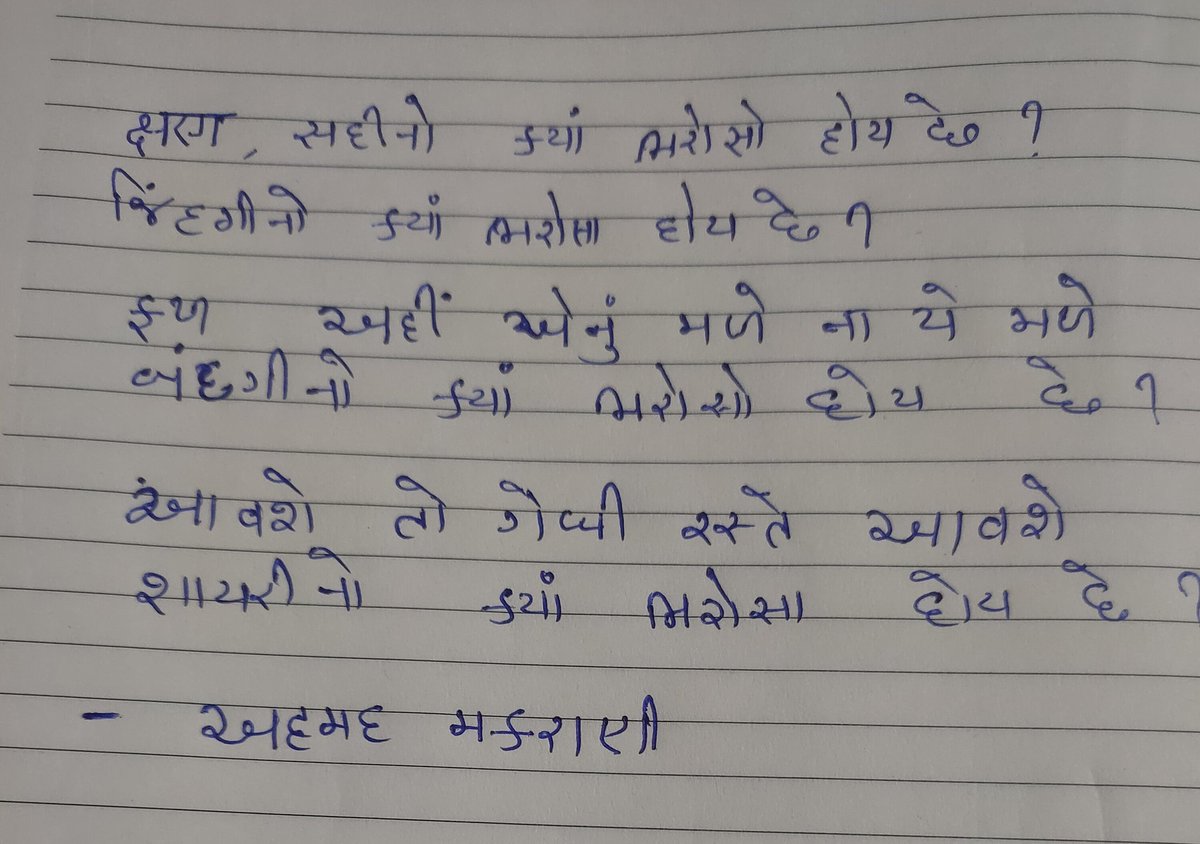 ક્ષણ, સદીનો ક્યાં ભરોસો હોય છે ?
જિંદગીનો ક્યાં ભરોસા હોય છે ?
ફળ અહીં એનું મળે ના યે મળે
બંદગીનો ક્યાં ભરોસો હોય છે ?
આવશે તો ગૈબી રસ્તે આવશે
શાયરીનો ક્યાં ભરોસા હોય છે ?
- અહમદ મકરાણી